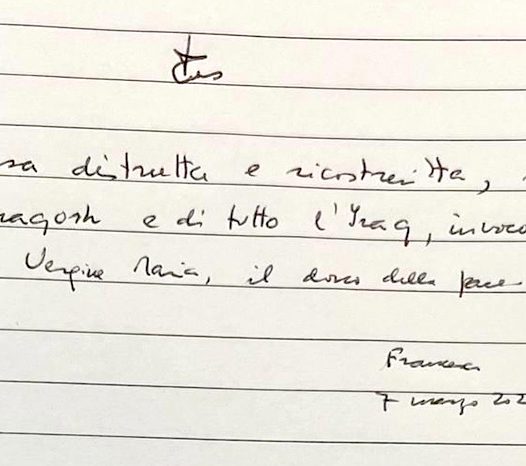 sa distrutta e ricostruita,
ragosh e di tutto l'Iraq, invoco
Vergine Maria, il dono della pace
Francesco
7 marzo 202